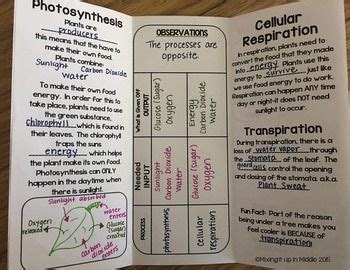 Photosynthesis
Plants are
producers
this means that they have to
make their own food.
Plants combine
Sunlight Carbon Dioxide
Water
To make their own food
energy. In order for this to
take place, plants need to use
the green substance,
chlorophyll which is found in
their leaves. The chlorophyll
traps the suns
energy which helps the
plant make its own food.
Photosynthesis can ONLY
happen in the daytime when
there is sunlight.
Sunlight absorbed
Oxygen
released
water
enters
Glucose
(sugar)
created
Carbon
dioxide
enters
OBSERVATIONS
The processes are
opposite.
What is Given Off
OUTPUT
Glucose (Sugar)
Oxygen
Energy
Carbon Dioxide
Water
Needed
INPUT
Sunlight
Carbon Dioxide
Water
Glucose (Sugar)
Oxygen
PROCESS
photosynthesis
cellular
respiration
Cellular
Respiration
In respiration, plants need to
convert the food that they made
into energy. Plants use this
energy to survive, just like
we use food energy to do work.
Respiration can happen ANY time
Day or night-it does NOT need
sunlight to occur.
Transpiration
During transpiration, there is a
loss of water vapor through
the stomata of the leaf. The
guard cells control the opening
and closing of the stomata. a.k.a.
Plant Sweat
Fun Fact: Part of the reason
being under a tree makes you
feel cooler is BECAUSE of
transpiration!
©Mixing it up in Middle 2015